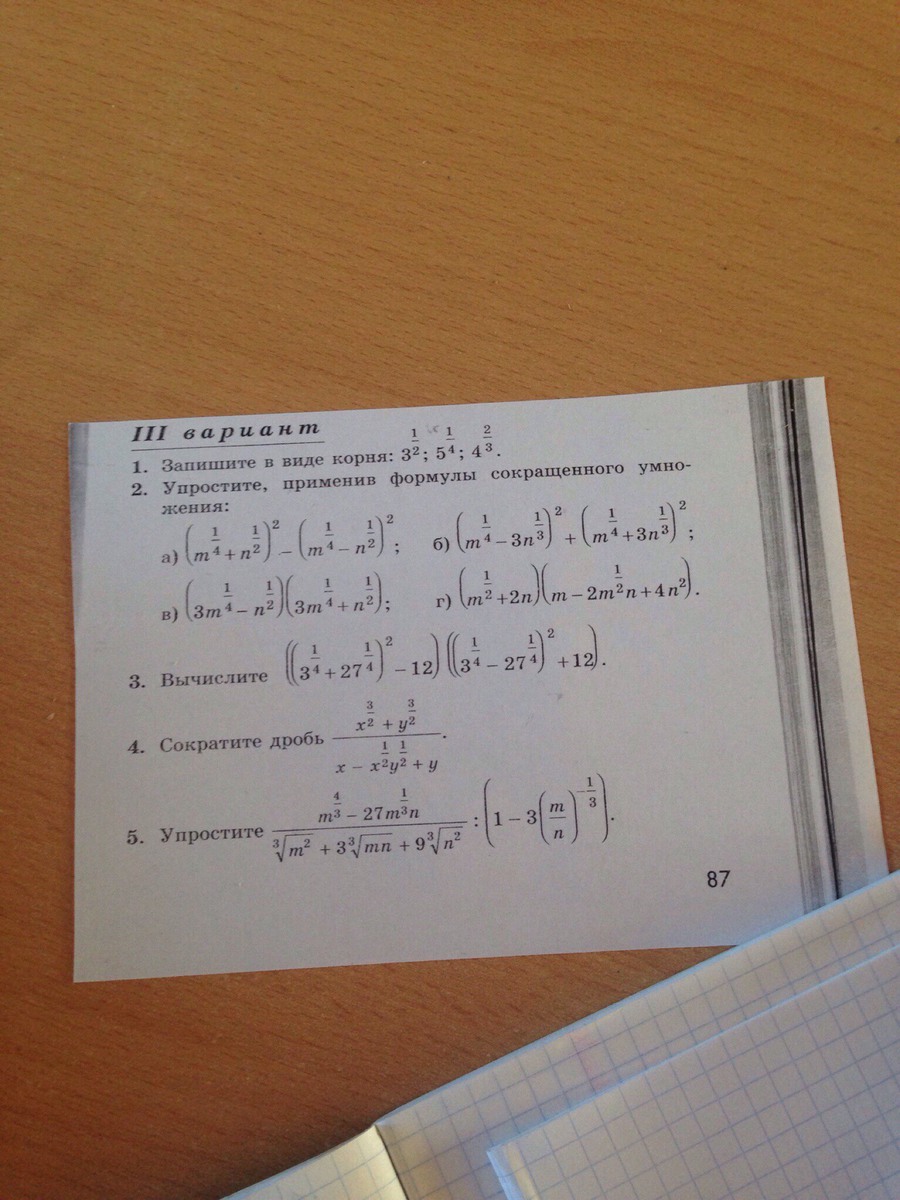 III вариант
1. Запишите в виде корня: 3^(1/2); 5^(1/4); 4^(2/3).
2. Упростите, применив формулы сокращенного умно-
жения:
а) (m^(1/4) + n^(1/2))^2 − (m^(1/4) − n^(1/2))^2; б) (m^(1/4) − 3n^(1/3))^2 + (m^(1/4) + 3n^(1/3))^2;
в) (3m^(1/4) − n^(1/2))(3m^(1/4) + n^(1/2)); г) (m^(1/2) + 2n)(m − 2m^(1/2)n + 4n^2).
3. Вычислите ((3^(1/4) + 27^(1/4))^2 − 12)((3^(1/4) − 27^(1/4))^2 + 12).
4. Сократите дробь (x^(3/2) + y^(3/2))/(x − x^(1/2)y^(1/2) + y).
5. Упростите (m^(4/3) − 27m^(1/3)n)/(∛(m^2) + 3∛(mn) + 9∛(n^2)) : (1 − 3(m/n)^(−1/3)).
87